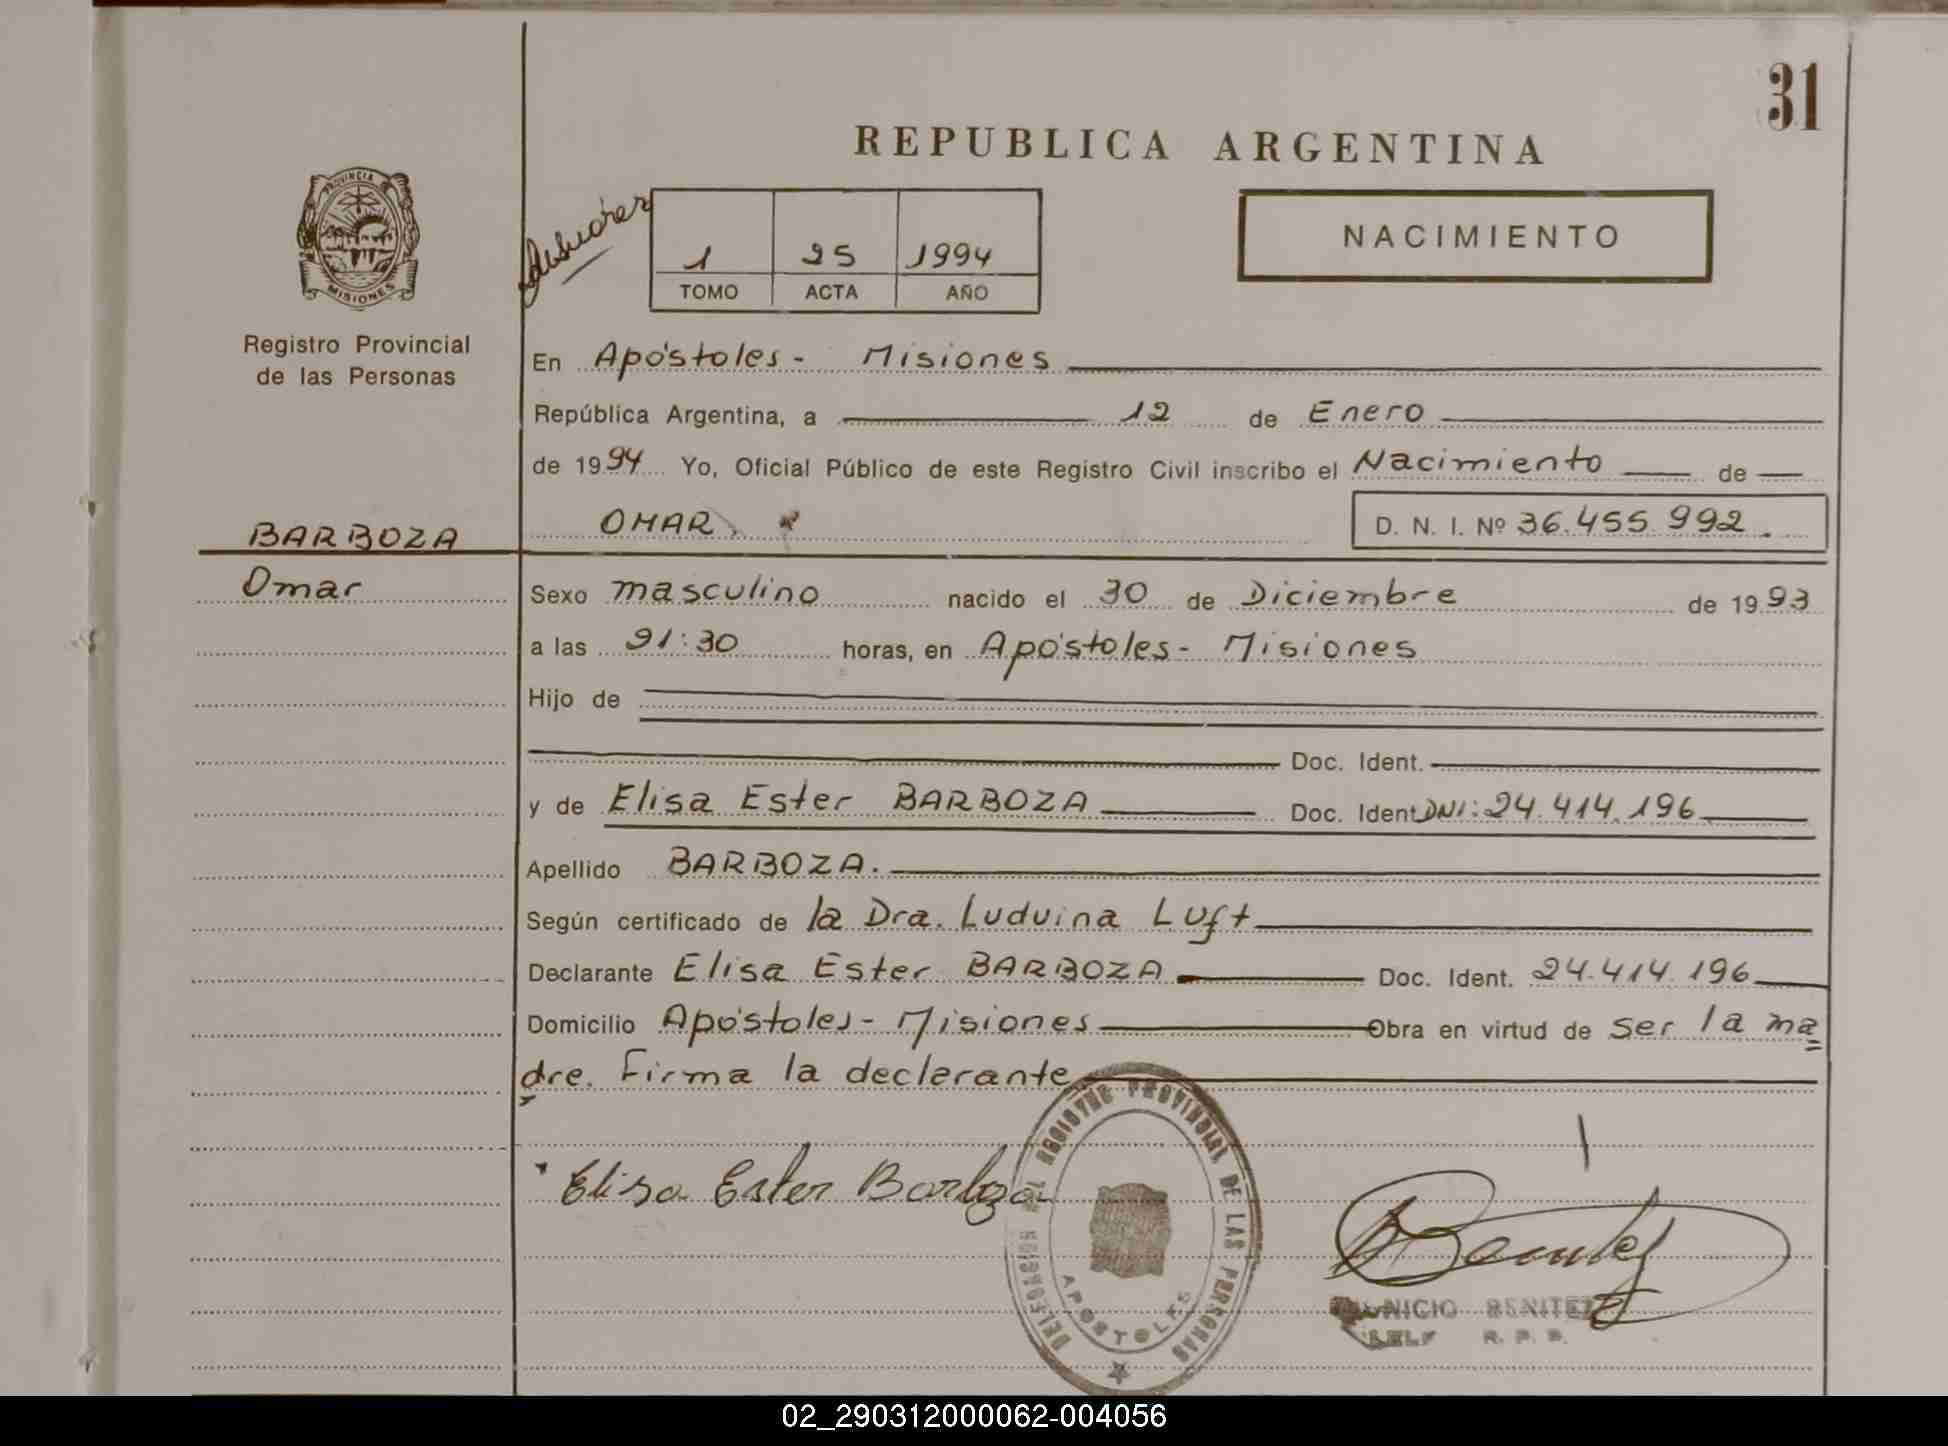 31
REPUBLICA ARGENTINA
PROVINCIA
MISIONES
Registro Provincial
de las Personas
1 25 1994
TOMO ACTA AÑO
NACIMIENTO
En Apóstoles - Misiones
República Argentina, a 12 de Enero
de 1994 Yo, Oficial Público de este Registro Civil inscribo el Nacimiento de
BARBOZA
Omar
OMAR
D. N. I. Nº 36.455.992.
Sexo masculino nacido el 30 de Diciembre de 1993
a las 21:30 horas, en Apóstoles - Misiones
Hijo de
Doc. Ident.
y de Elisa Ester BARBOZA Doc. Ident DNI: 24.414.196
Apellido BARBOZA.
Según certificado de la Dra. Luduina Luft
Declarante Elisa Ester BARBOZA Doc. Ident. 24.414.196
Domicilio Apóstoles - Misiones Obra en virtud de ser la ma=
dre. Firma la declarante
Elisa Ester Barboza
REGISTRO PROVINCIAL DE LAS PERSONAS
APOSTOLES
BENITEZ
02_290312000062-004056